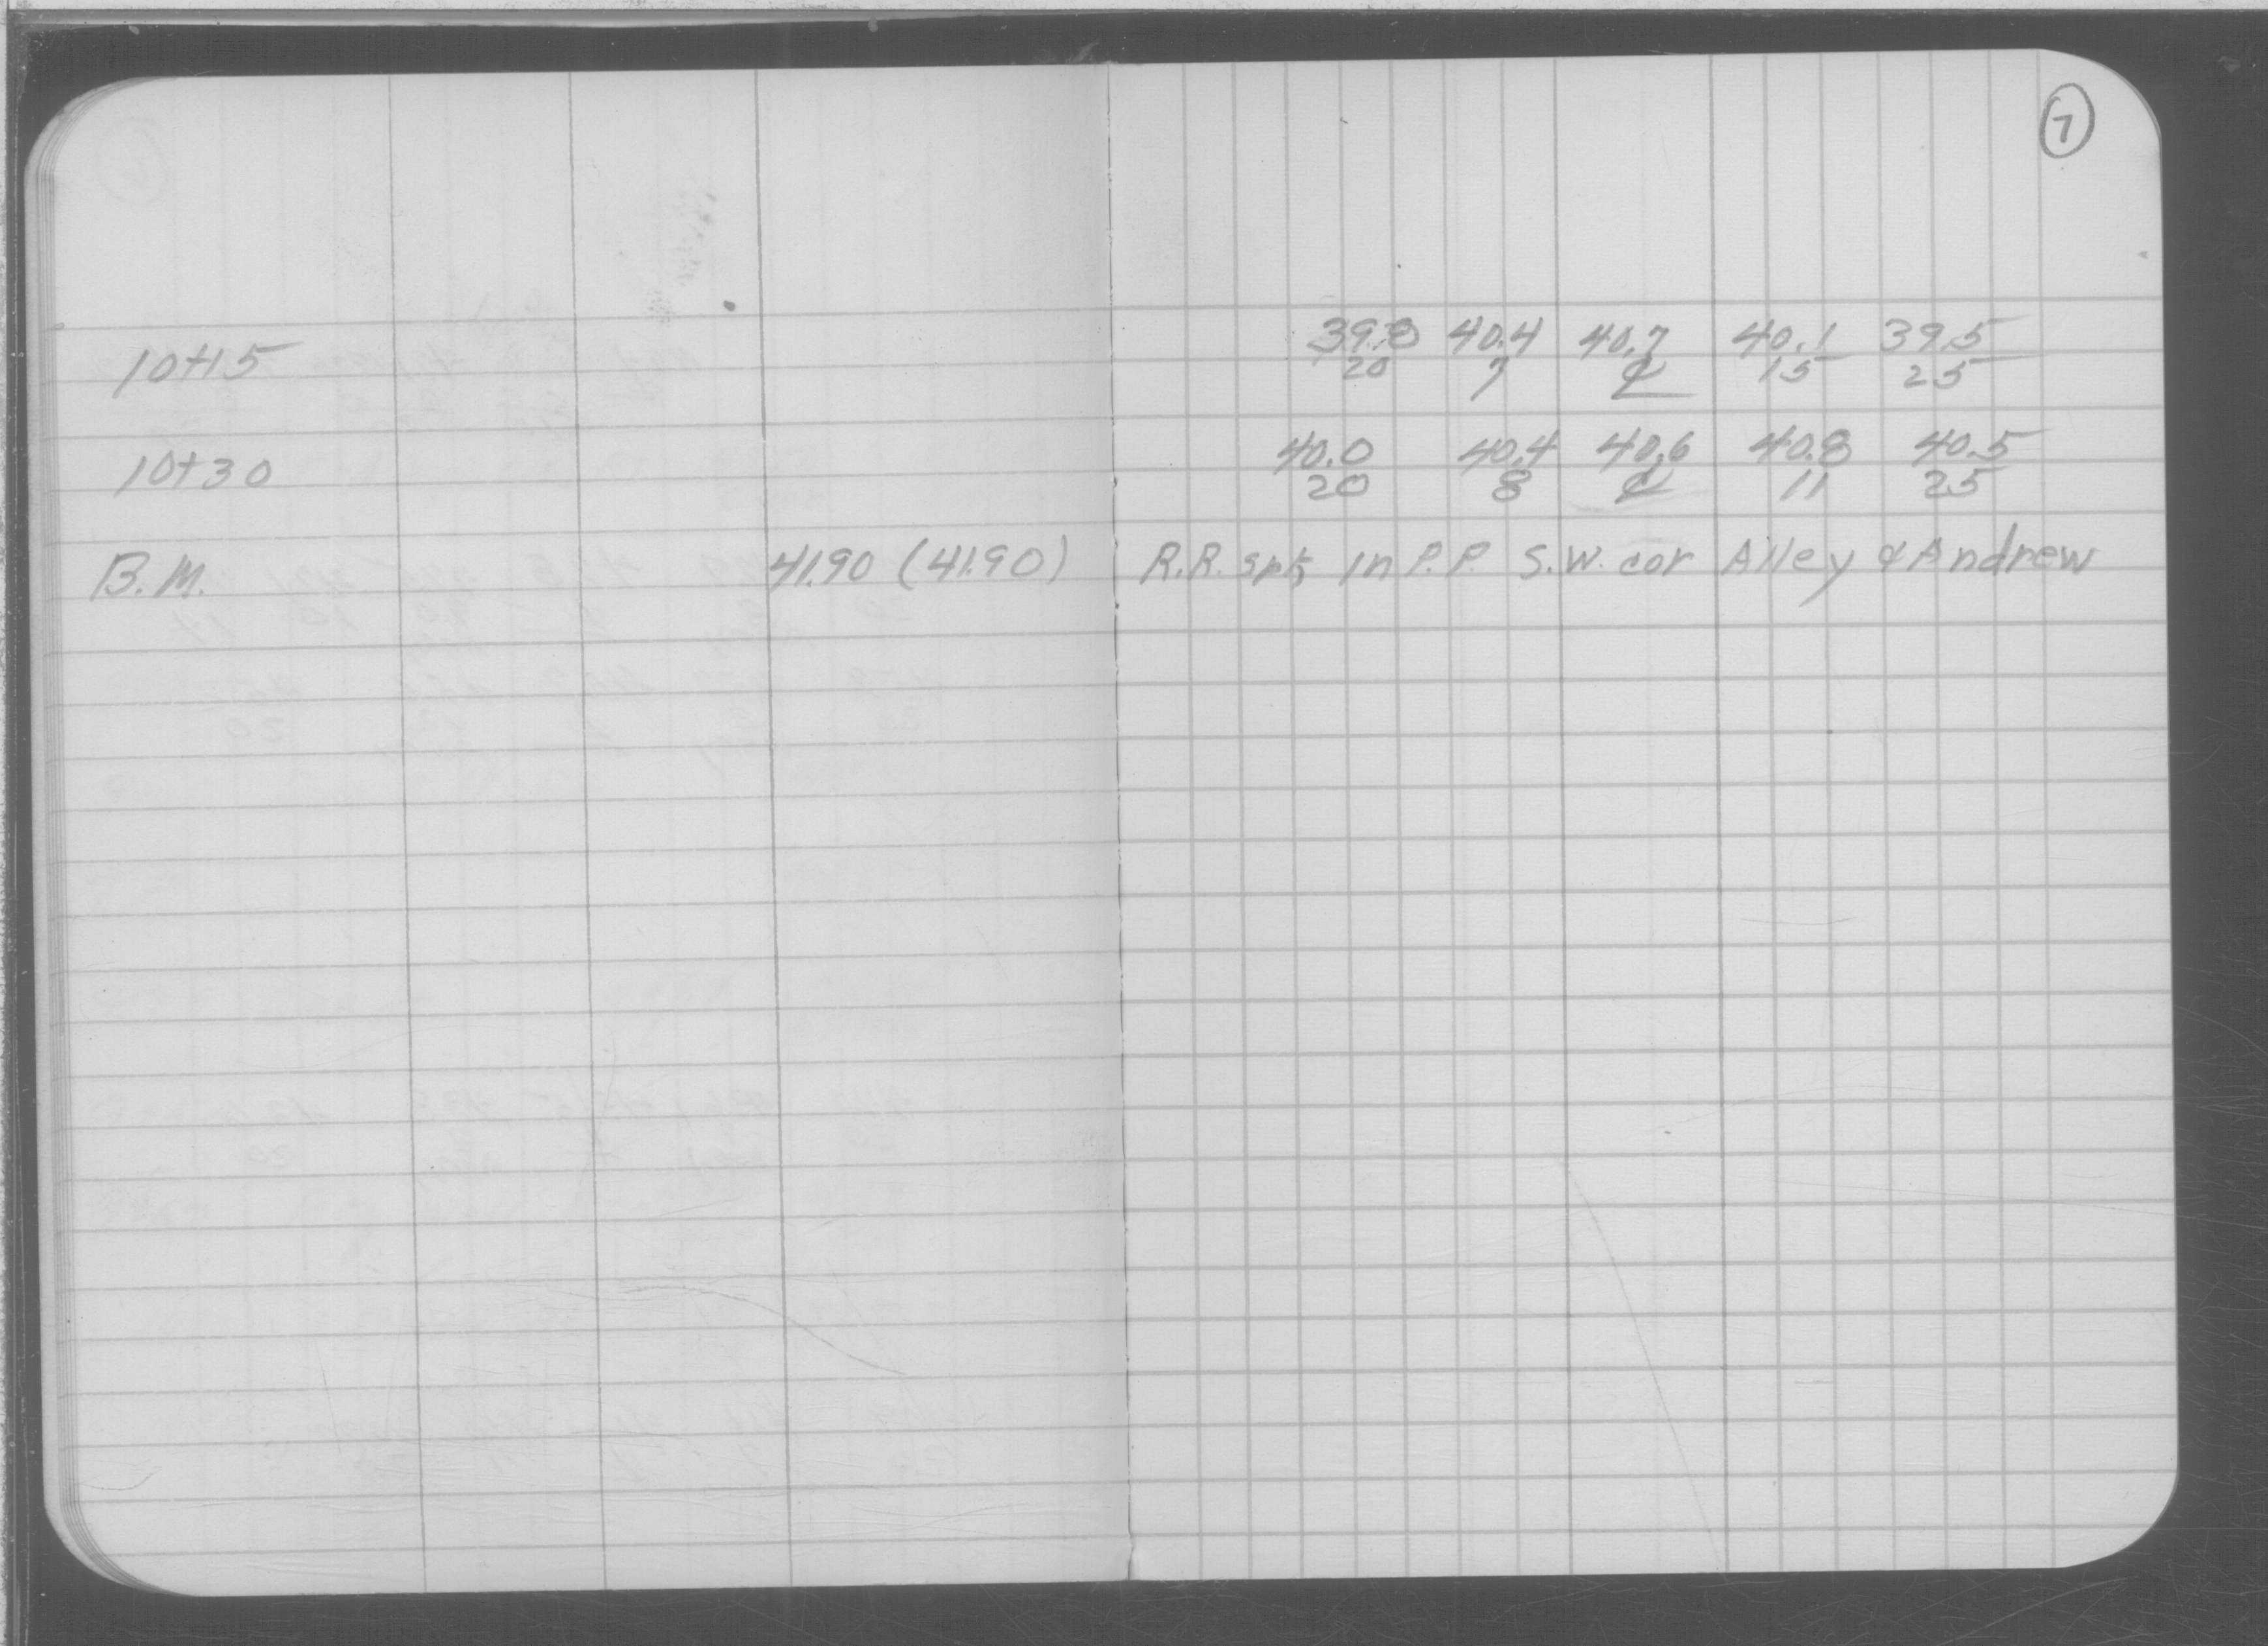 7
10+15 39.8 40.4 40.7 40.1 39.5
20 7 ℄ 15 25
10+30 40.0 40.4 40.6 40.8 40.5
20 8 ℄ 11 25
B.M. 41.90 (41.90) R.R. spk in P.P. S.W. cor Alley & Andrew